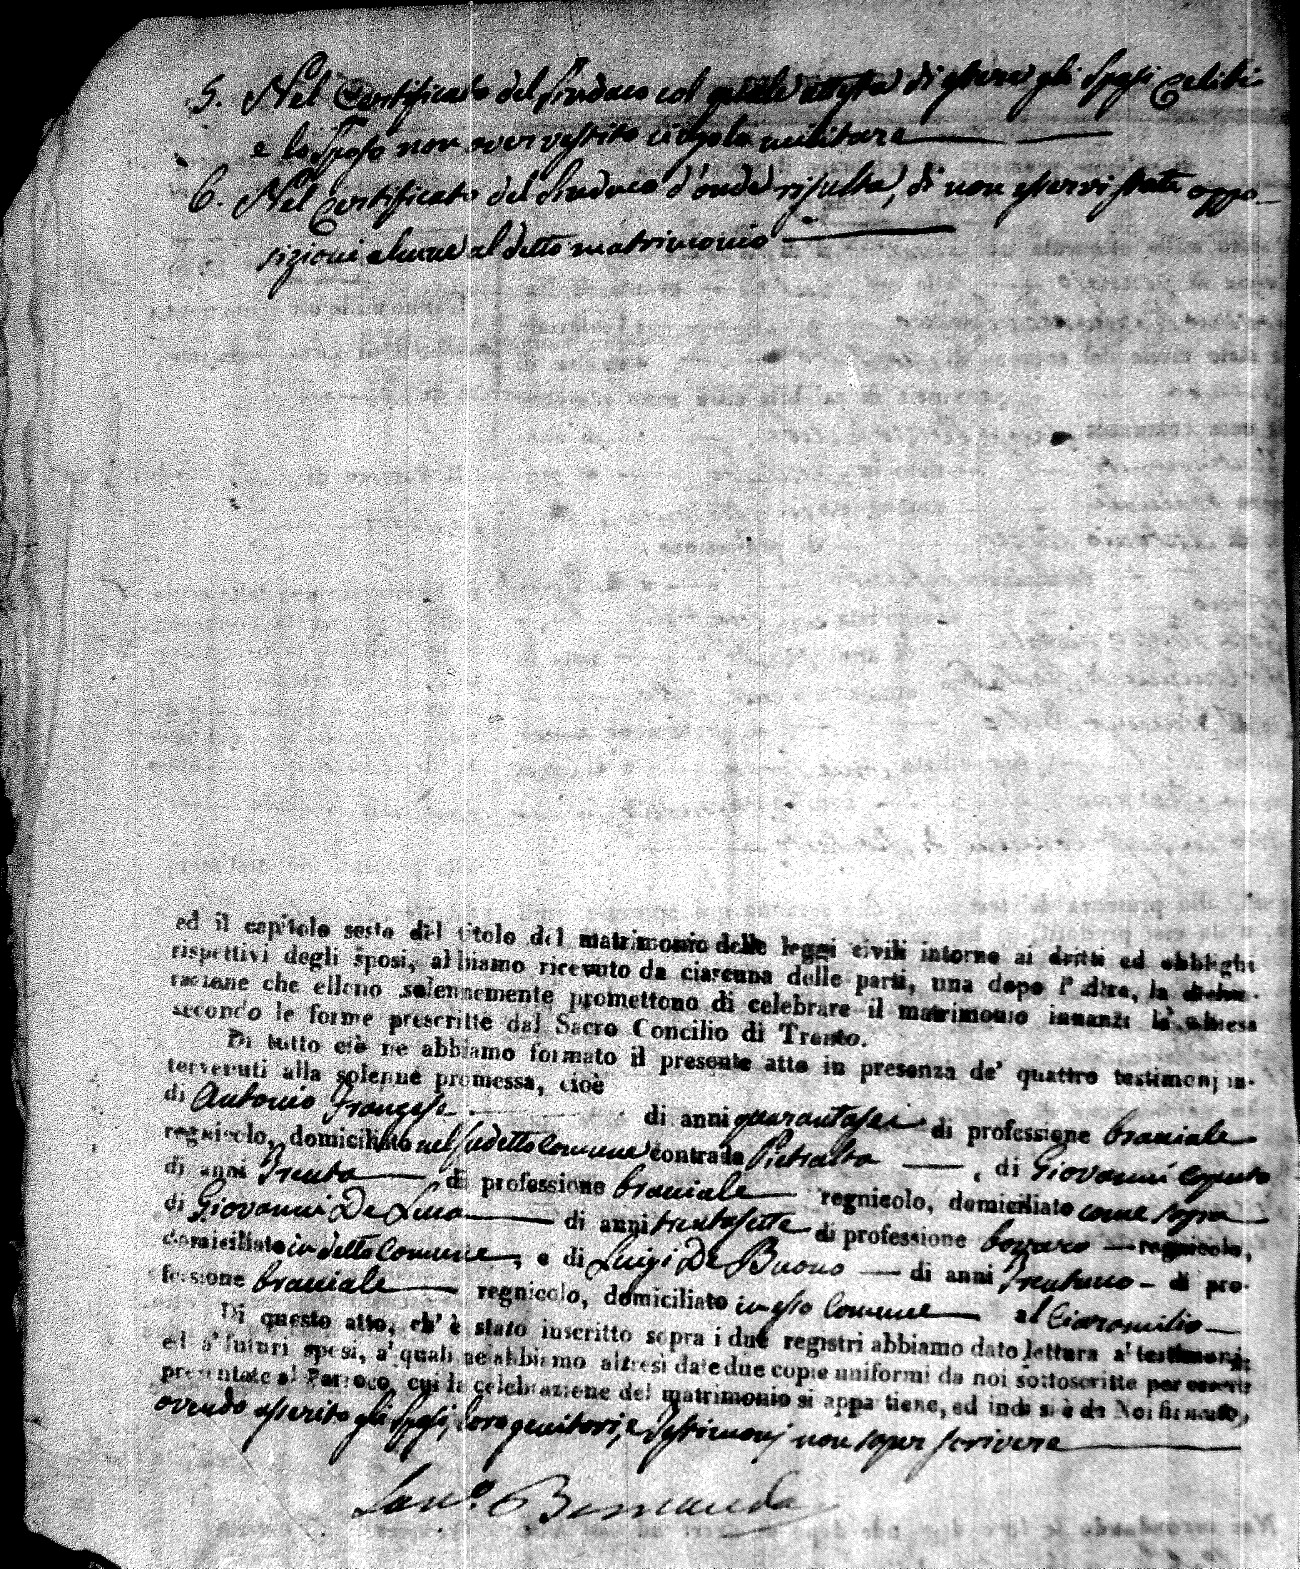 5. Nel Certificato del Sindaco col quale attesta di essere gli Sposi Celibi
e lo Sposo non aver vestito cingolo militare
6. Nel Certificato del Sindaco d'onde risulta, di non esservi state oppo-
sizioni alcune al detto matrimonio
ed il capitolo sesto del titolo del matrimonio delle leggi civili intorno ai dritti ed obblighi
rispettivi degli sposi, abbiamo ricevuto da ciascuna delle parti, una dopo l'altra, la dichia-
razione che elleno solennemente promettono di celebrare il matrimonio innanzi la chiesa
secondo le forme prescritte dal Sacro Concilio di Trento.
Di tutto ciò ne abbiamo formato il presente atto in presenza de' quattro testimonj in-
tervenuti alla solenne promessa, cioè
di Antonio Francese di anni quarantasei di professione braciale
regnicolo, domiciliato nel sudetto Comune contrada Pietralta , di Giovanni Caputo
di anni Trenta di professione braciale regnicolo, domiciliato come sopra
di Giovanni De Luca di anni trentasette di professione bovaro regnicolo,
domiciliato in detto Comune, e di Luigi De Buono di anni Trentuno di pro-
fessione braciale regnicolo, domiciliato in esso Comune al Ciaromilio
Di questo atto, ch' è stato inscritto sopra i due registri abbiamo dato lettura a' testimonj,
ed a' futuri sposi, a' quali ne abbiamo altresì date due copie uniformi da noi sottoscritte per essere
presentate al Parroco, cui la celebrazione del matrimonio si appartiene, ed indi si è da Noi firmato,
avendo asserito gli Sposi, loro genitori, e Testimonj non saper scrivere